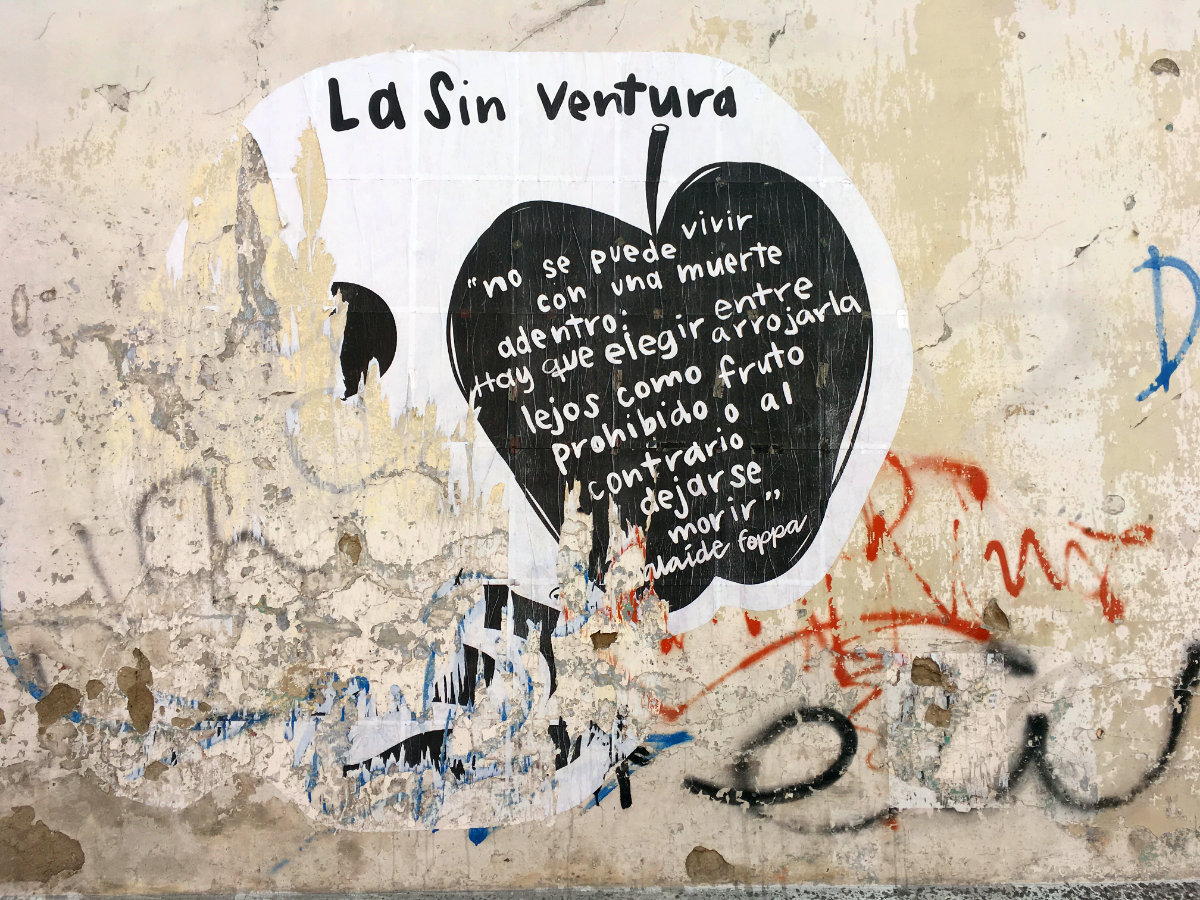 La Sin Ventura
"no se puede vivir
con una muerte
adentro:
Hay que elegir entre
arrojarla
lejos como fruto
prohibido o al
contrario
dejarse
morir"
alaide foppa